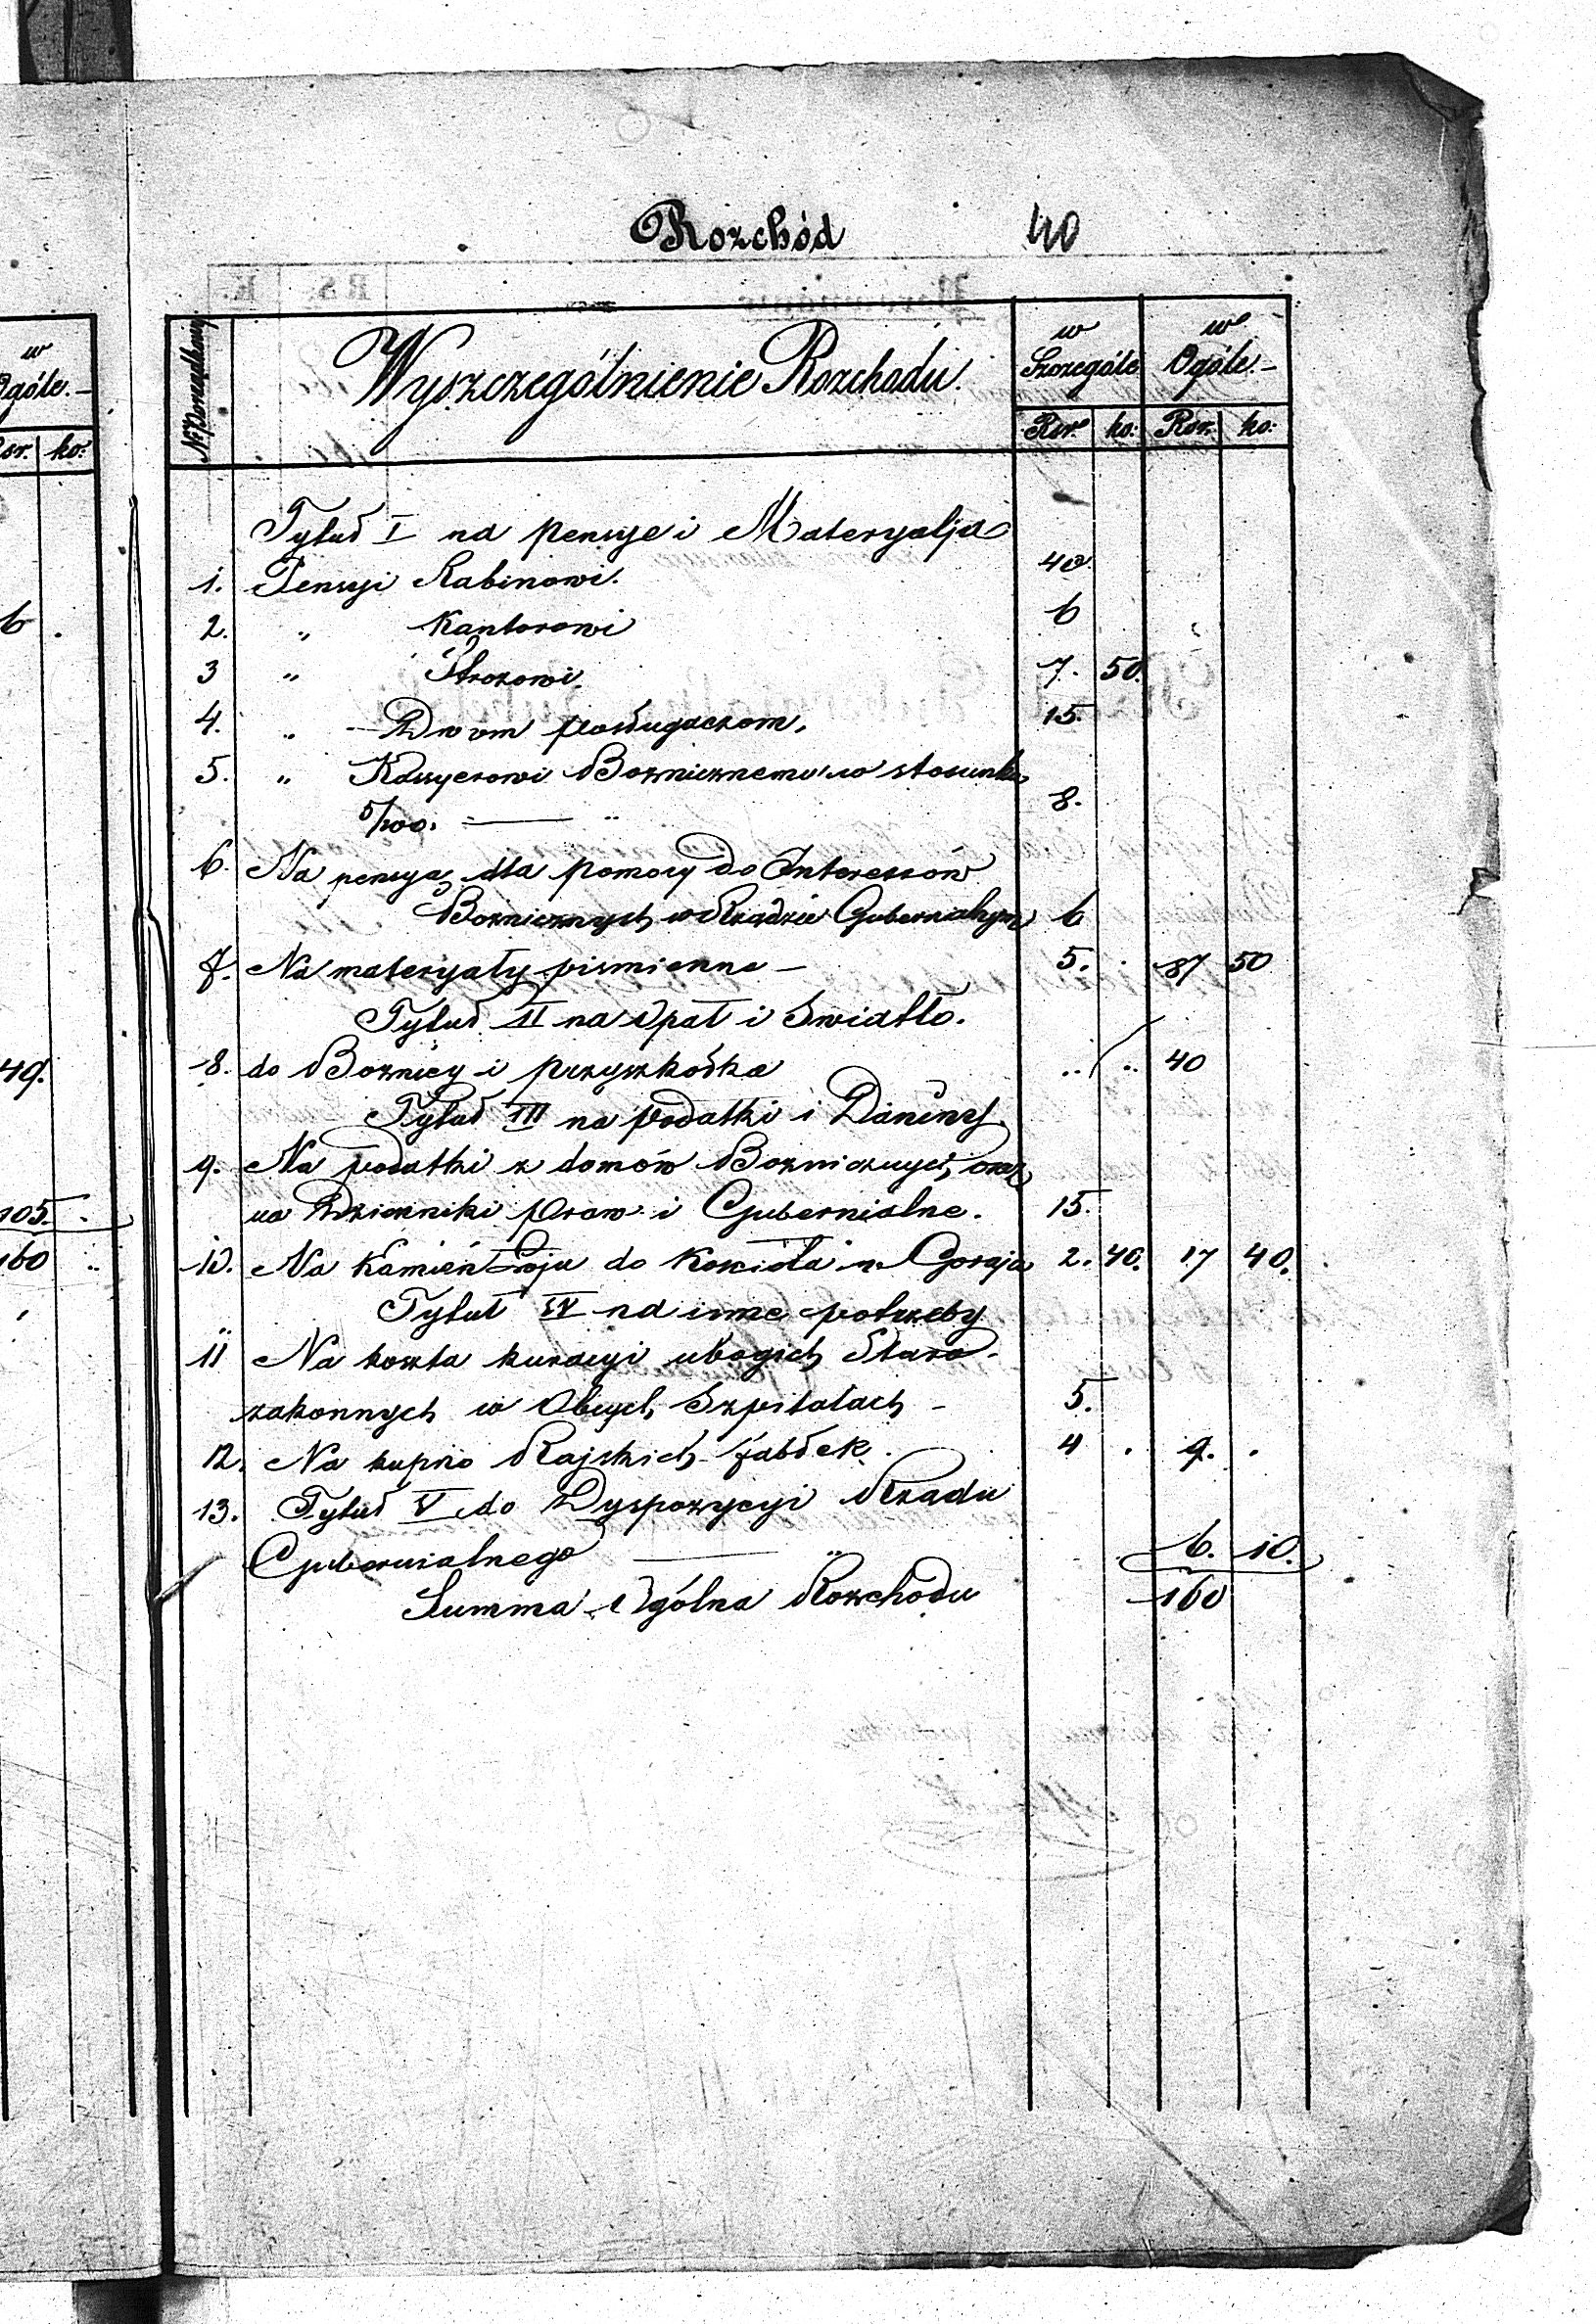 Rozchód 40
w
Ogóle.-
Rsr. ko:
6 .
49.
105. .
160 ..
Nr. Porządkowy
Wyszczególnienie Rozchodu.
w Szczególe
w Ogóle.-
Rsr. ko: Rsr. ko:
Tytuł I na pensye i Materyalja
1. Pensyi Rabinowi. 40
2. " Kantorowi 6
3 " Strozowi. 7. 50.
4. " Dwom posługaczom. 15.
5. " Kassyerowi Boznicznemu w stosunku
5/100. — " 8.
6. Na pensyą dla pomocy do Interessów
Boznicznych w Rządzie Gubernialnym 6
7. Na materyały pismienne — 5. . 87 50
Tytuł II na Opał i Swiatło.
8. do Boznicy i przyszkółka .. .. 40
Tytuł III na podatki i Daniny.
9. Na podatki z domów Bozniczych, oraz
na Dzienniki praw i Gubernialne. 15.
10. Na Kamień Łoju do Koscioła w Goraju 2. 40. 17 40.
Tytuł IV na inne potrzeby
11 Na koszta kuracyi ubogich Staro-
zakonnych w Obcych Szpitalach — 5.
12. Na kupno Rajskich Jabłek. 4 . 9. .
13. Tytuł V do Dyspozycyi Rządu
Gubernialnego — " 6. 10.
Summa Ogólna Rozchodu 160